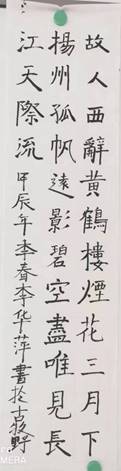 故人西辭黃鶴樓煙花三月下
揚州孤帆遠影碧空盡唯見長
江天際流
甲辰年季春李华萍書於古城野